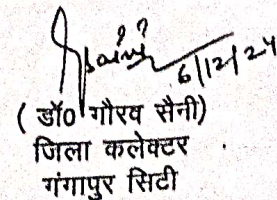 Saini
6/12/24
( डॉ0 गौरव सैनी)
जिला कलेक्टर
गंगापुर सिटी